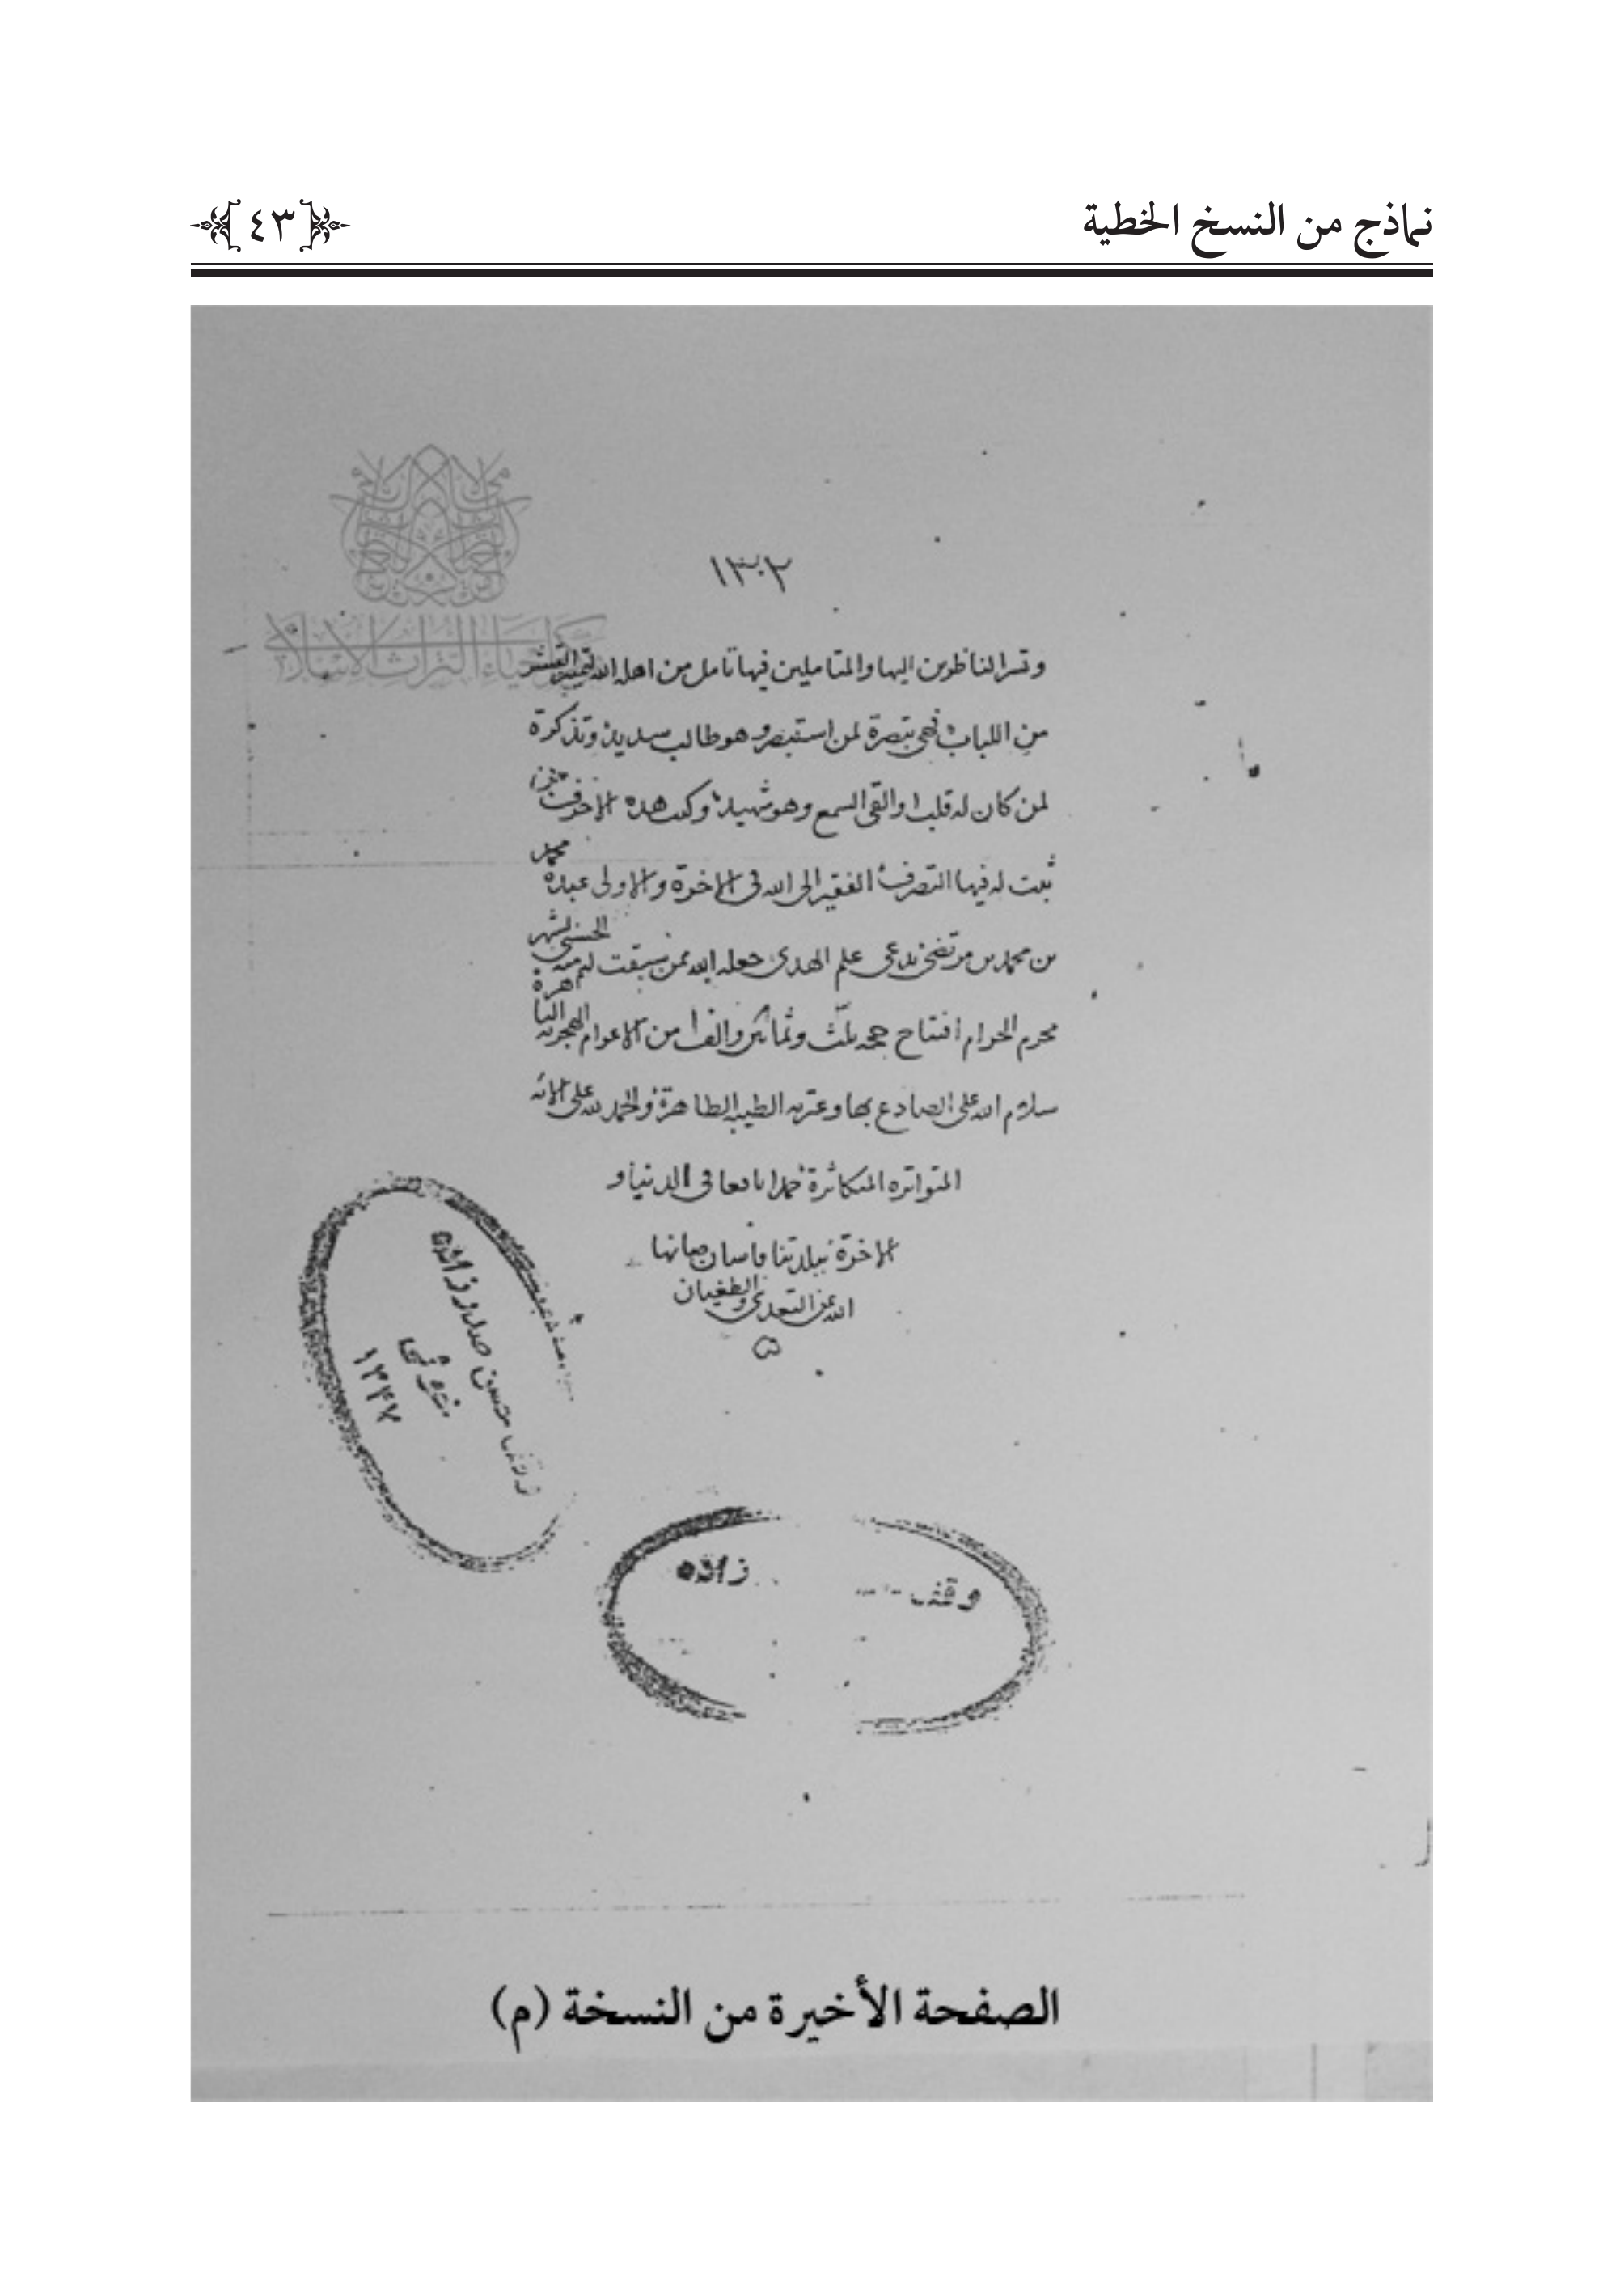 نماذج من النسخ الخطية
[٤٣]
١٣٠٢
الناظرين اليها والمتاملين فيها تامل من اهل الله
من اللباب فهى تبصرة لمن استبصر وهو طالب سديد وتذكرة
لمن كان له قلب او القى السمع وهو شهيد وكتب هذه الاحرف
ثبت له فيها التصرف الفقير الى الله فى الاخرة والاولى عبده محمد
بن محمد بن مرتضى علم الهدى جعله الله ممن سبقت لهم منه الحسنى لشهر
محرم الحرام افتتاح حجه ثلث وثمانين والف من الاعوام الهجريه الباهرة
سلام الله على الصادع بها وعترته الطيبه الطاهرة والحمد لله على الائه
المتواتره المتكاثرة حمدا نافعا فى الدنيا و
الاخرة ببلدتنا قاسان صانها
الله عن التعدى والطغيان
حسن صدر زاده
خوئى
١٣٤٧
وقف
زاده
الصفحة الأخيرة من النسخة (م)